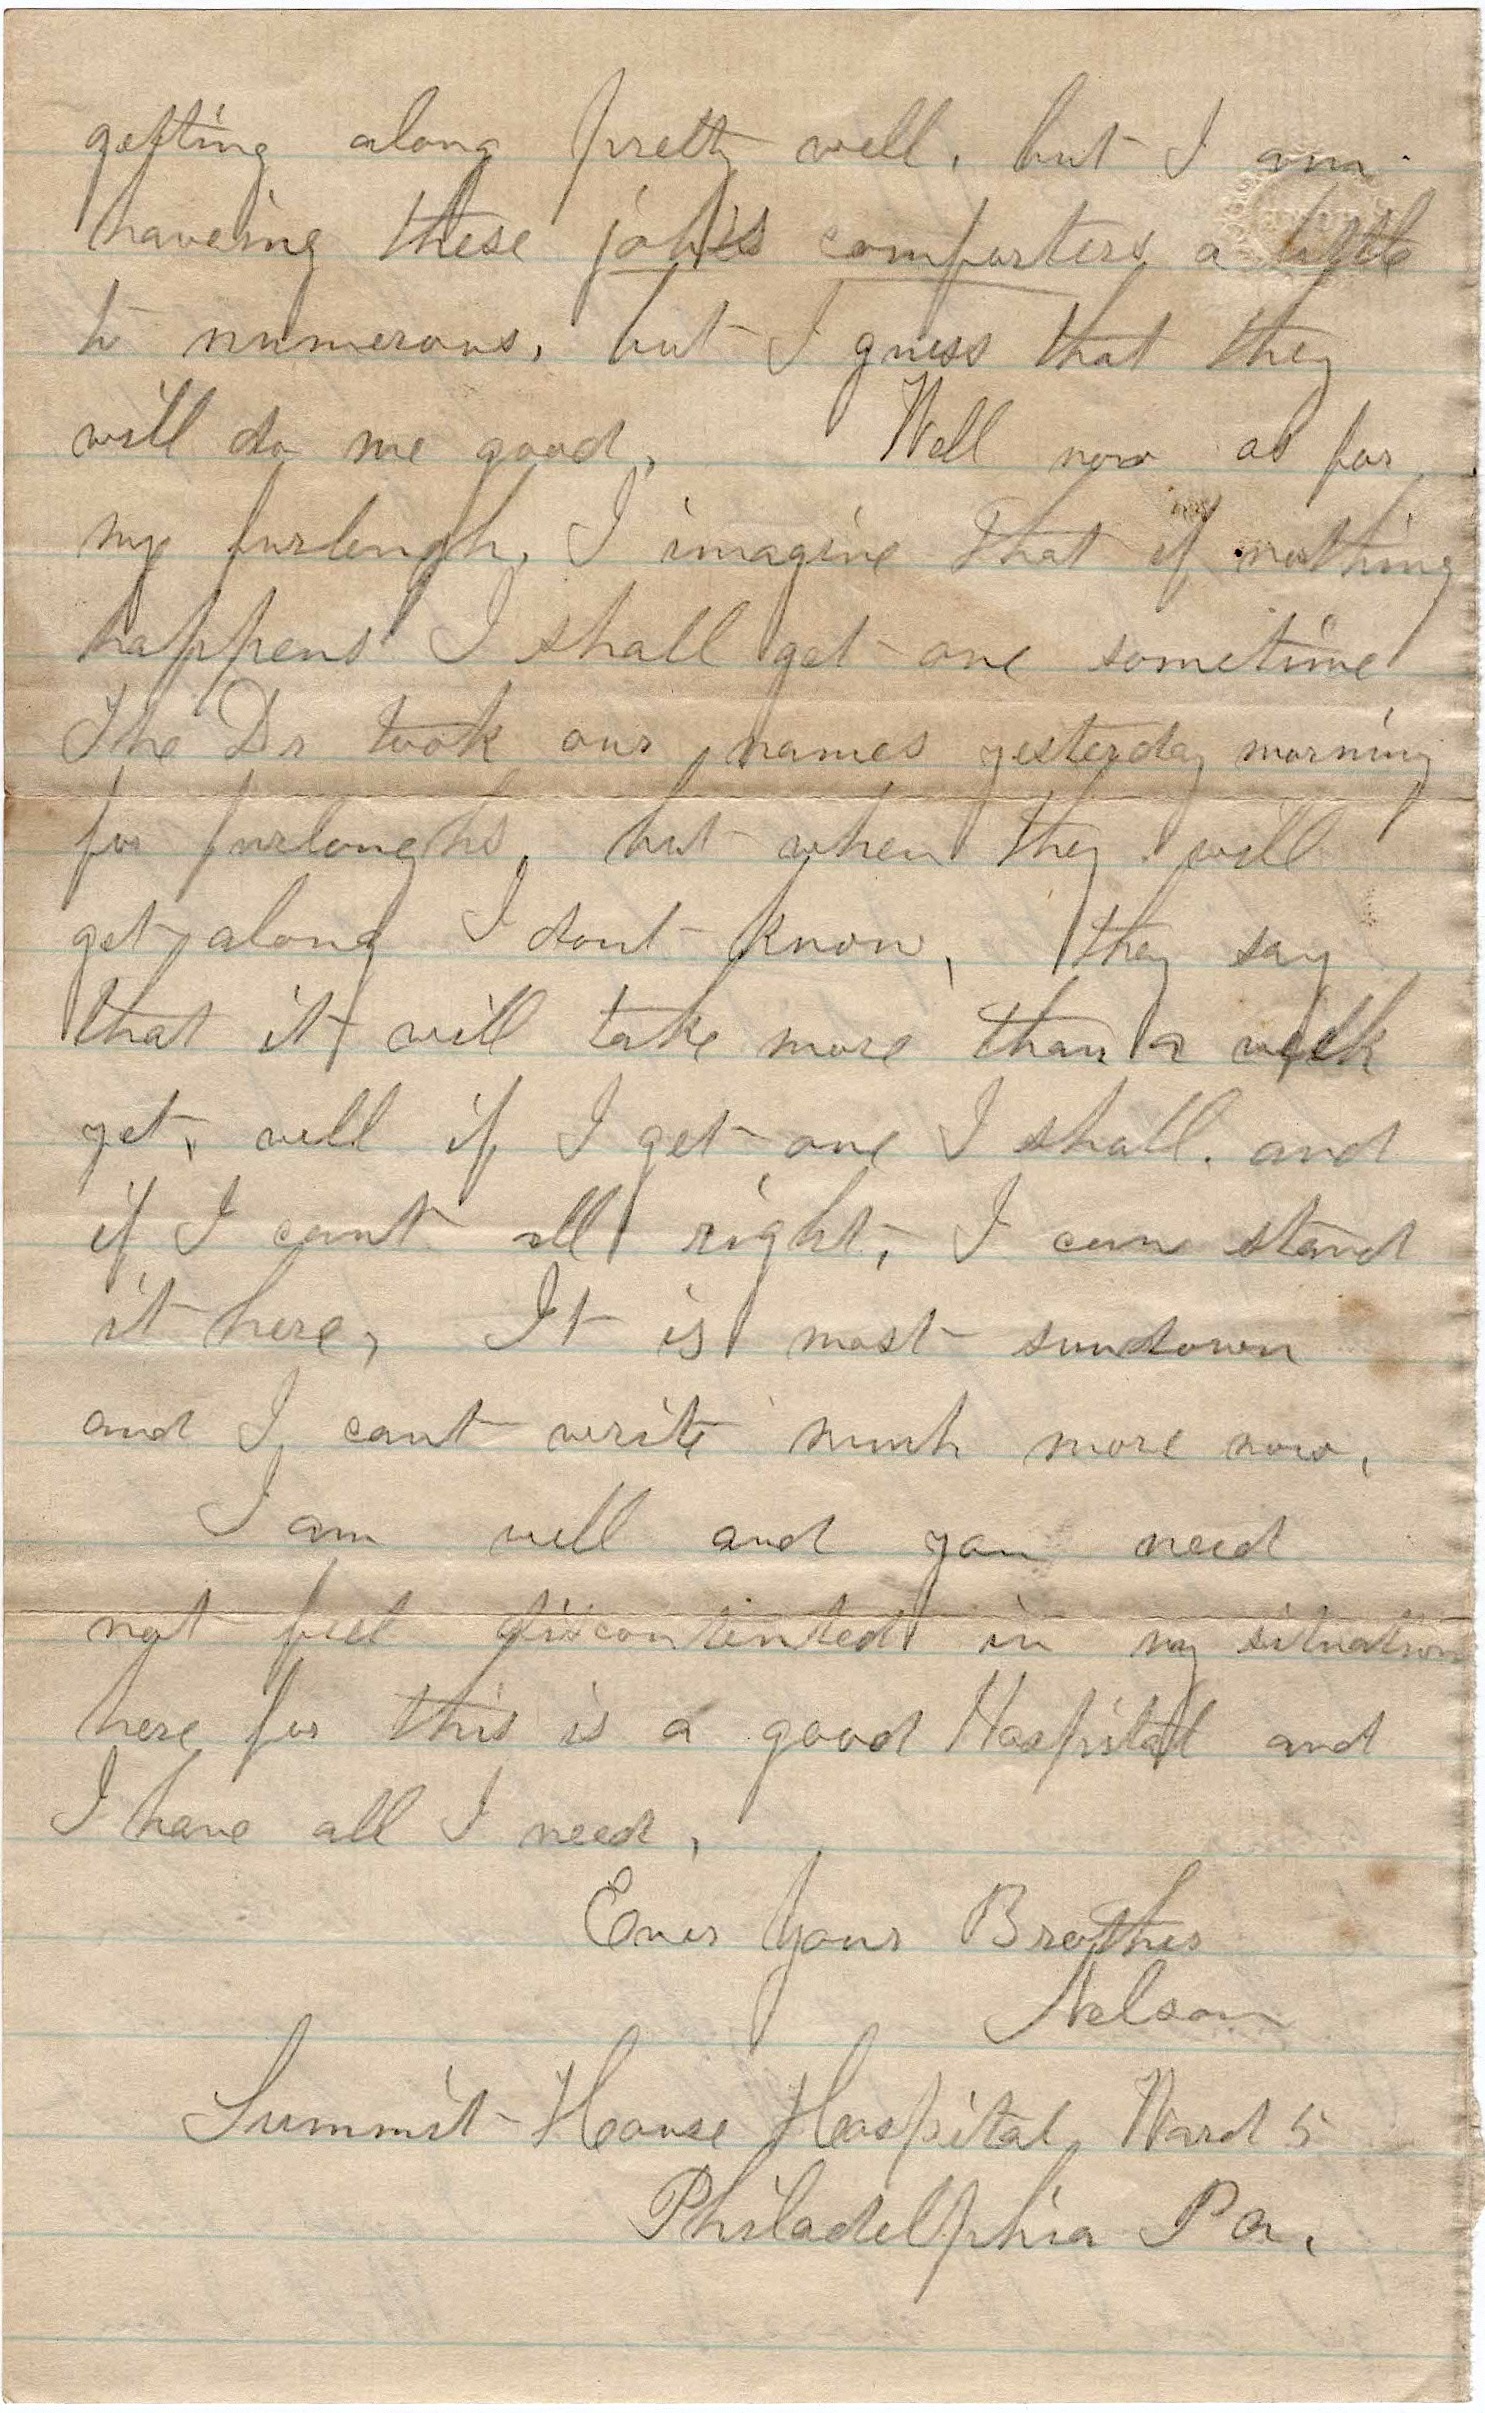 getting along pretty well, but I am
haveing these job's comforters a little
to numerous, but I guess that they
will do me good, Well now as for
my furlough, I imagine that if nothing
happens I shall get one sometime
The Dr took our names yesterday morning
for furloughs, but when they will
get along I dont know, they say
that it will take more than a week
yet, well if I get one I shall. and
if I cant all right, I can stand
it here, It is most sundown
and I cant write much more now,
I am well and you need
not feel discontented in my situation
here for this is a good Hospital and
I have all I need,
Ever Your Brother
Nelson
Summit House Hospital, Ward 5
Philadelphia Pa,